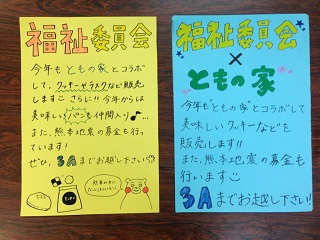 福祉委員会
今年もともの家とコラボ
して、クッキーやラスクなど販売
します さらに!! 今年からは
美味しいパンも仲間入り♪
また、熊本地震の募金も行
っています!
ぜひ、3Aまでお越し下さい
福祉委員会
×
ともの家
今年も"ともの家"とコラボして
美味しいクッキーなどを
販売します!!
また、熊本地震の募金も
行います
3Aまでお越し下さい!!